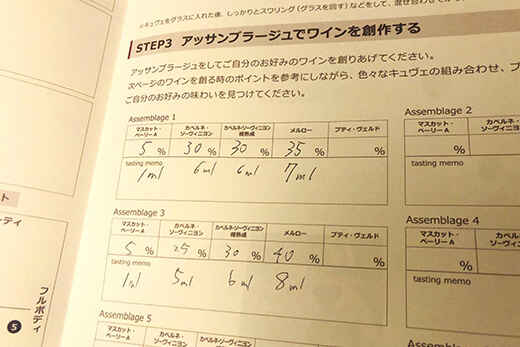 ※キュヴェをグラスに入れた後、しっかりとスワリング（グラスを回す）などをして、混ぜ合わせてから
STEP3 アッサンブラージュでワインを創作する
アッサンブラージュをしてご自分のお好みのワインを創りあげてください。
次ページのワインを創る時のポイントを参考にしながら、色々なキュヴェの組み合わせ、ブ
ご自分のお好みの味わいを見つけてください。
Assemblage 1
マスカット・ベーリーA カベルネ・ソーヴィニヨン カベルネ・ソーヴィニヨン樽熟成 メルロー プティ・ヴェルド
5 % 30 % 30 % 35 % %
tasting memo
1ml 6ml 6ml 7ml
Assemblage 2
マスカット・ベーリーA カベルネ ソーヴィニ
%
tasting memo
Assemblage 3
マスカット・ベーリーA カベルネ・ソーヴィニヨン カベルネ・ソーヴィニヨン樽熟成 メルロー プティ・ヴェルド
5 % 25 % 30 % 40 % %
tasting memo
1ml 5ml 6ml 8ml
Assemblage 4
マスカット・ベーリーA カベ ソーヴィ
%
tasting memo
Assemblage 5
マスカット・ カベルネ・ カベルネ・ソーヴィニヨン メルロー
ト
ーディ
フルボディ
5